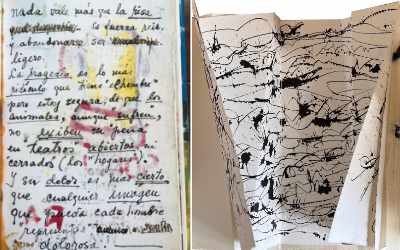 nada vale más que la risa
Es fuerza reír
y abandonarse, ser
ligero.
La tragedia es lo más
ridículo que tiene "el hombre"
pero estoy segura, de que los
animales, aunque sufren,
no exiben su pena
en teatros abiertos, ni
cerrados (los "hogares").
Y su dolor es más cierto
que cualquier imagen
que pueda cada hombre
representar
como dolorosa.